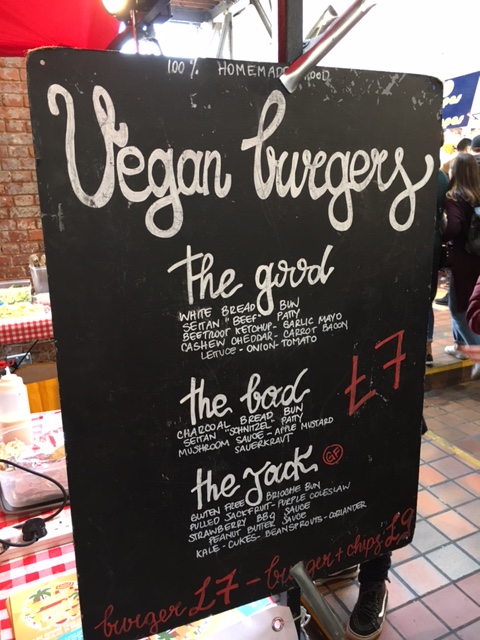 100% HOMEMADE FOOD
Vegan burgers
the good
WHITE BREAD BUN
SEITAN "BEEF" PATTY
BEETROOT KETCHUP - GARLIC MAYO
CASHEW CHEDDAR - CARROT BACON
LETTUCE - ONION - TOMATO
£7
the bad
CHARCOAL BREAD BUN
SEITAN "SCHNITZEL" PATTY
MUSHROOM SAUCE - APPLE MUSTARD
SAUERKRAUT
the Jack GF
GLUTEN FREE BRIOCHE BUN
PULLED JACKFRUIT - PURPLE COLESLAW
STRAWBERRY BBQ SAUCE
PEANUT BUTTER SAUCE
KALE - CUKES - BEANSPROUTS - CORIANDER
burger £7 - burger + chips £9